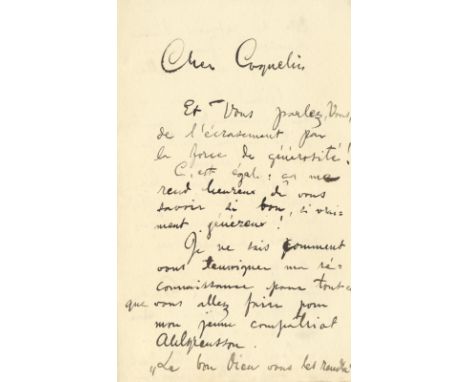 Cher Coquelin
Et Vous parlez, Vous,
de l'écrasement par
la force de générosité!
C'est égal: ça me
rend heureux de vous
savoir si bon, si vrai-
ment généreux!
Je ne sais comment
vous temoigner ma ré=
connaissance pour tout ce
que vous allez faire pour
mon jeune compatriot
„Le bon Dieu vous les rendra